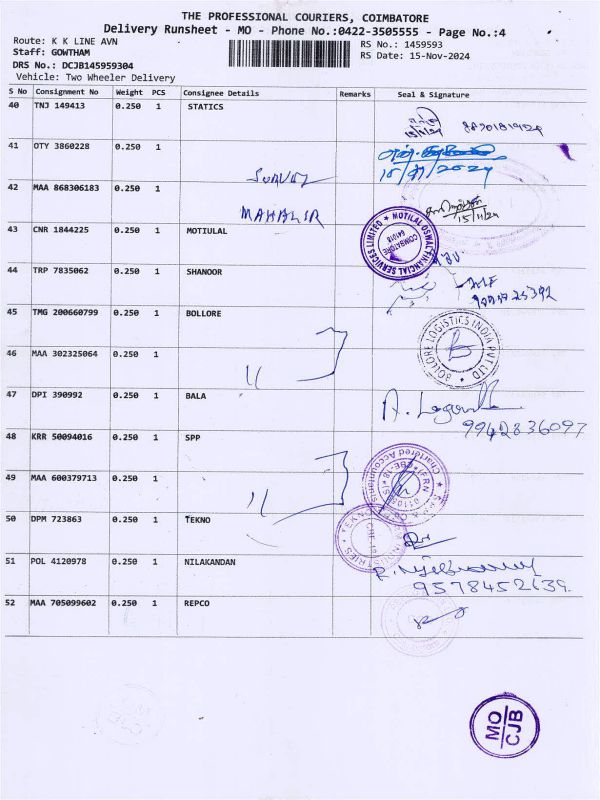 THE PROFESSIONAL COURIERS, COIMBATORE
Delivery Runsheet - MO - Phone No.:0422-3505555 - Page No.:4
Route: K K LINE AVN
RS No.: 1459593
Staff: GOWTHAM
RS Date: 15-Nov-2024
DRS No.: DCJB145959304
Vehicle: Two Wheeler Delivery
S No Consignment No Weight PCS Consignee Details Remarks Seal & Signature
40 TNJ 149413 0.250 1 STATICS
15/11/24
41 OTY 3860228 0.250 1
15/11/2024
42 MAA 868306183 0.250 1
MAHALIR
15/11/24
43 CNR 1844225 0.250 1 MOTIULAL
MOTILAL OSWAL FINANCIAL SERVICES LIMITED
COIMBATORE
641018
44 TRP 7835062 0.250 1 SHANOOR
45 TMG 200660799 0.250 1 BOLLORE
BOLLORE LOGISTICS INDIA PVT LTD
46 MAA 302325064 0.250 1
"
47 DPI 390992 0.250 1 BALA
9942836097
48 KRR 50094016 0.250 1 SPP
Chartered Accountants
49 MAA 600379713 0.250 1
"
50 DPM 723863 0.250 1 TEKNO
51 POL 4120978 0.250 1 NILAKANDAN
9578452639
52 MAA 705099602 0.250 1 REPCO
MO
CJB